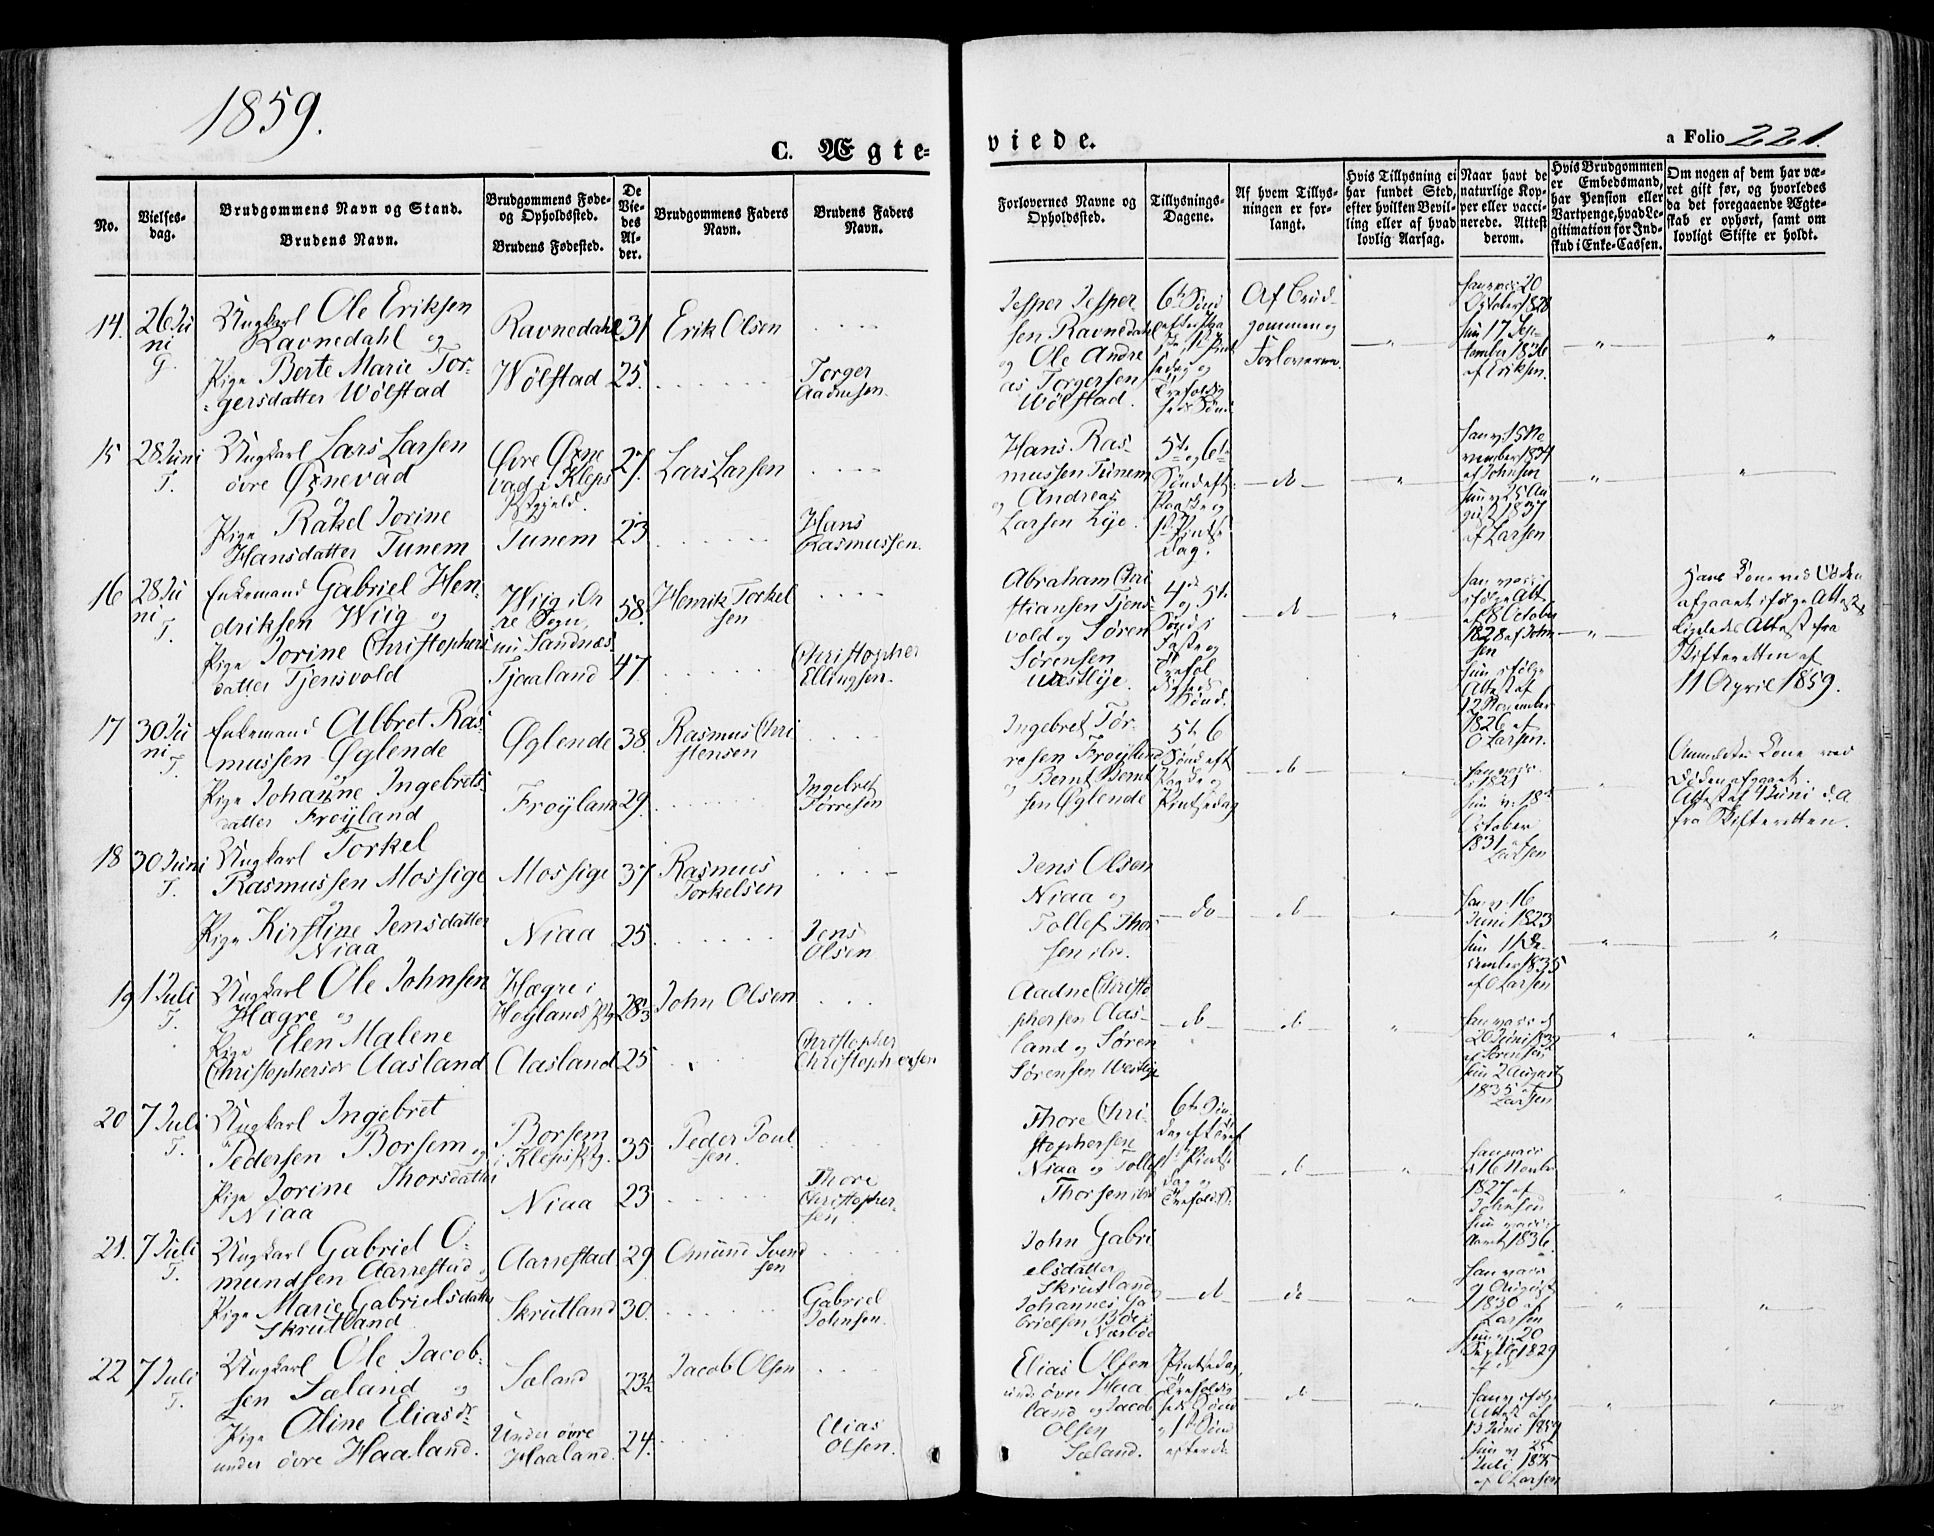 1859.
C. Ægte-
viede.
a Folio 221.
No.
Vielses-
dag.
Brudgommens Navn og Stand.
Brudens Navn.
Brudgommens Føde-
og Opholdssted.
Brudens Fødested.
De
Vie-
des
Al-
der.
Brudgommens Faders
Navn.
Brudens Faders
Navn.
Forlovernes Navne og
Opholdssted.
Tillysnings-
Dagene.
Af hvem Tillys-
ningen er for-
langt.
Hvis Tillysning ei
har fundet Sted,
efter hvilken Bevil-
ling eller af hvad
lovlig Aarsag.
Naar havt de
naturlige Kop-
per eller vacci-
nerede. Attest
derom.
Hvis Brudgommen
er Embedsmand,
har Pension eller
Vartpenge, hvad Le-
gitimation for Ind-
skud i Enke-Cassen.
Om nogen af dem har væ-
ret gift før, og hvorledes
da det foregaaende Ægte-
skab er ophørt, samt om
lovligt Skifte er holdt.
14. 26 Ju
ni
G.
Ungkarl Ole Eriksen
Ravnedahl og
Pige Berte Marie Tor-
gersdatter Wølstad
Ravnedahl
Wølstad
31
25.
Erik Olsen
Torger
Aadnesen.
Jesper Jesper
sen Ravnedahl
og Ole Andre
as Torgersen
Wølstad.
Af Brud-
gommen og
Forloverne.
20
October 1828
17 Sep-
tember 1836
af Eriksen.
15 28 Juni
T.
Ungkarl Lars Larsen
øvre Øxnevad
Pige Rakel Jorine
Hansdatter Tunem
Øvre Øxne
vad i Kleps
Tunem
27.
23
Lars Larsen
Hans
Rasmussen.
Hans Ras
mussen Tunem
og Andreas
Larsen Lye.
5te og 6te
Sønd eft
Paaske og
Dag.
do
15 No
vember 1834
af Johnsen
25 Au
gust 1837
af Larsen
16 28 Ju
ni
T.
Enkemand Gabriel Hen-
driksen Wiig og
Pige Jorine Christophers
datter Tjensvold
Wiig i Or
re Sogn,
nu Sandnæs
Tjaaland
58.
47
Henrik Torkel
sen
Christopher
Ellingsen.
Abraham Chri
stiansen Tjens-
vold og Søren
Sørensen
Westlye.
4de og 5te
Sønd i
Faste og
do
ifølge Att
af 8 October
1828 af John
sen
ifølge
Attest af
12 November
1826 af
O Larsen.
Hans Kone ved Døden
afgaaet ifølge Attest
ligeledes Attest fra
Skifteretten af
11 April 1859.
17 30 Ju
ni
T.
Enkemand Albret Ras
mussen Øglende
Pige Johanne Ingebrets
datter Frøyland
Øglende
Frøyland
38.
29.
Rasmus Chri
stensen
Ingebret
Torresen
Ingebret Tor-
resen Frøyland
og Bernt Bernt
sen Øglende
5te 6
Sønd eft
Paaske og
Pintsedag
do
1821
18
October
1831 af
Larsen
Kone ved
Døden afgaaet.
Attest af 4 Juni d. A
fra Skifteretten.
18 30 Juni
T.
Ungkarl Torkel
Rasmussen Mossige
og
Pige Kirstine Jensdatter
Niaa
Mossige
Niaa
37
25
Rasmus
Torkelsen
Jens
Olsen
Jens Olsen
Niaa og
Tollef Thor
sen ibr.
do
do
16
Juni 1823
11 De
cember 1835
af O Larsen
19 1 Juli
T.
Ungkarl Ole Johnsen
Hægre og
Pige Elen Malene
Christophersdr Aasland
Hægre i
Høylands
Aasland
28 2/3
25
John Olsen
Christopher
Christophersen
Aadne Christo
phersen Aas-
land og Søren
Sørensen Westlye
do
do
20 Juni 1832
af Sørensen
2 August
1835 af
Larsen
20 7 Juli
T.
Ungkarl Ingebret
Pedersen Borsem og
Pige Jorine Thorsdatter
Niaa
Borsem
i Kleps Pg.
Niaa
35
23
Peder Poul
sen.
Thore
Christopher-
sen
Thore Chri-
stophersen
Niaa og Tollef
Thorsen ibr
6te Søn
do
16 Novbr
1827 af
Johnsen
1836.
21. 7 Juli
T.
Ungkarl Gabriel O-
mundsen Aarrestad og
Pige Marie Gabrielsdatter
Skrutland
Aarrestad
Skrutland
29
30.
Omund Svend
sen
Gabriel
Johnsen.
John Gabri
elsdatter
Skrutland
Johannes Ga
brielsen Bøe i
Nærbøe
do
do
9 August
1830 af
Larsen
20
1829
22 7 Juli
T.
Ungkarl Ole Jacob-
sen Sæland og
Pige Oline Eliasdr
under øvre Haaland.
Sæland
Under øvre
Haaland.
23 1/2
24.
Jacob Olsen
Elias
Olsen.
Elias Olsen
under øvre Haa
land og Jacob
Olsen
Sæland.
Pintsedag
Trefoldig
heds Sønd
og 1te Sønd
efter do
do
ifølge
Attest af
13 Juni 1859
25
Juli 1835
af O Larsen